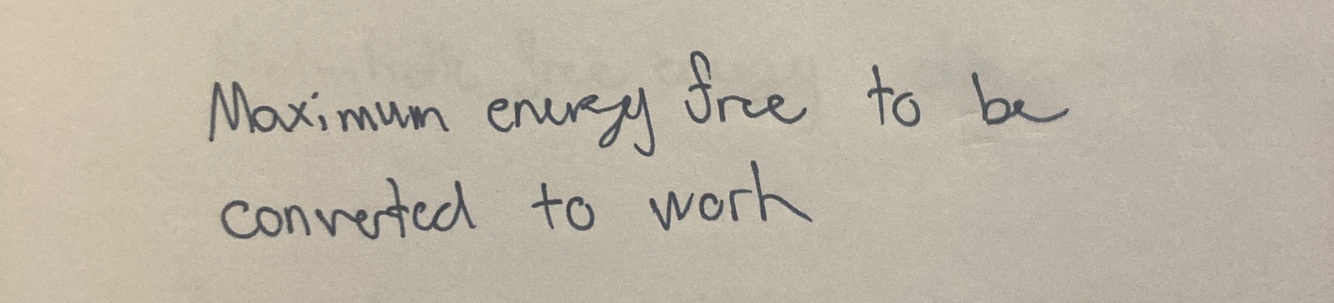 Maximum energy free to be
converted to work